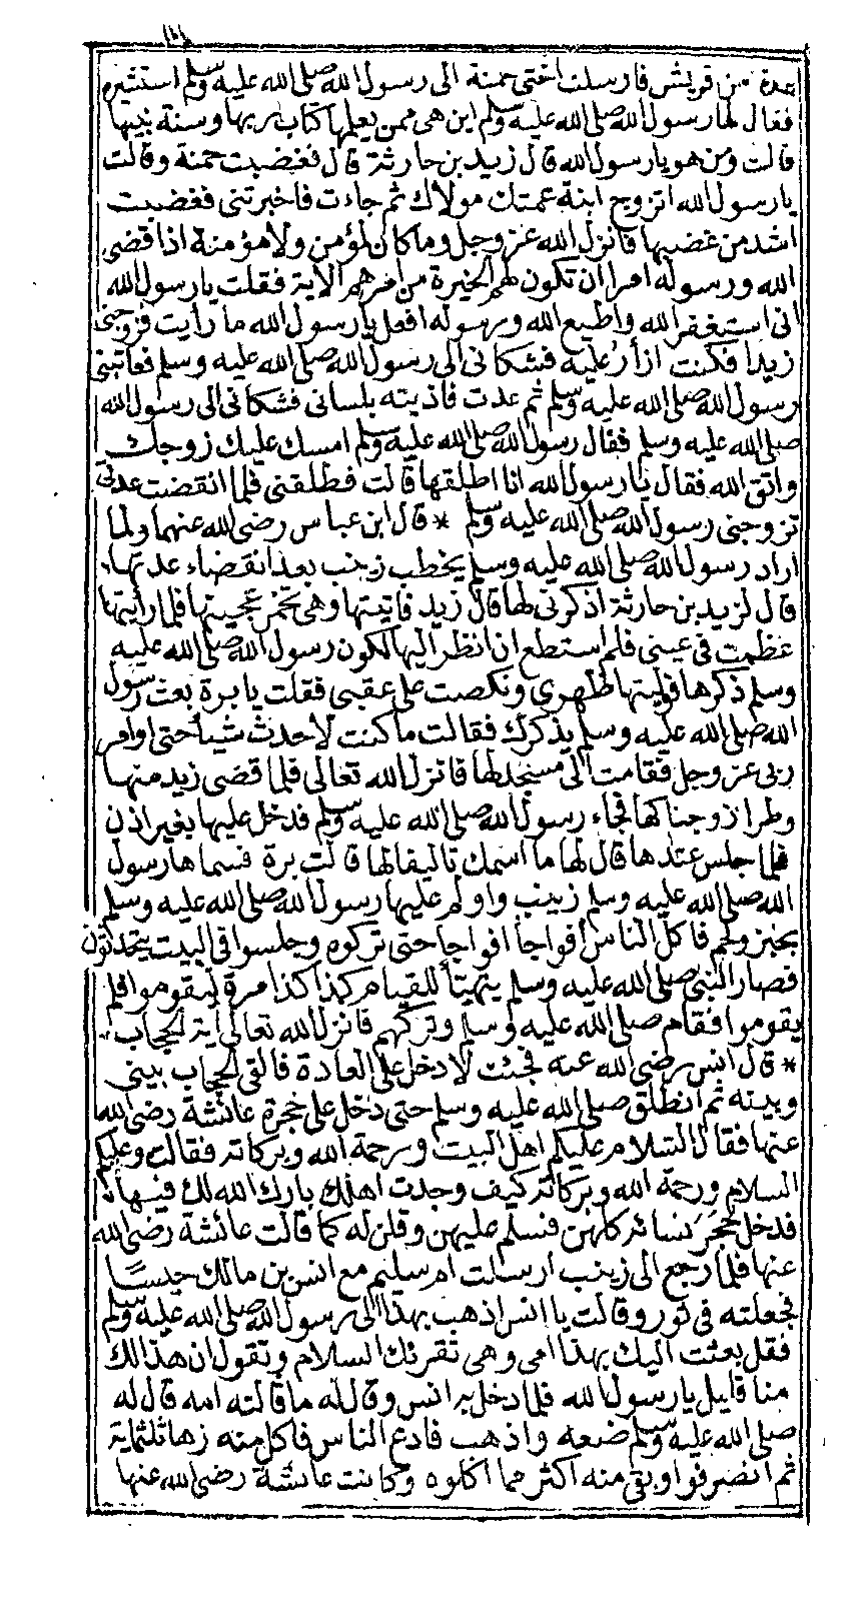 عدة من قريش فارسلت اختى حمنة الى رسول الله صلى الله عليه وسلم استشيره
فقال لها رسول الله صلى الله عليه وسلم اين هى ممن يعلمها كتاب ربها وسنة نبيها
قالت ومن هو يا رسول الله قال زيد بن حارثة قال فغضبت حمنة وقالت
يا رسول الله اتزوج ابنة عمتك مولاك ثم جاءت فاخبرتنى فغضبت
اشد من غضبها فانزل الله عز وجل وما كان لمؤمن ولا مؤمنة اذا قضى
الله ورسوله امرا ان تكون لهم الخيرة من امرهم الاية فقلت يا رسول الله
انى استغفر الله واطيع الله ورسوله افعل يا رسول الله ما رأيت فزوجنى
زيدا فكنت ازأر عليه فشكانى الى رسول الله صلى الله عليه وسلم فعاتبنى
رسول الله صلى الله عليه وسلم ثم عدت فاذيته بلسانى فشكانى الى رسول الله
صلى الله عليه وسلم فقال رسول الله صلى الله عليه وسلم امسك عليك زوجك
واتق الله فقال يا رسول الله انا اطلقها قالت فطلقنى فلما انقضت عدتى
تزوجنى رسول الله صلى الله عليه وسلم * قال ابن عباس رضى الله عنهما ولما
اراد رسول الله صلى الله عليه وسلم يخطب زينب بعد انقضاء عدتها
قال لزيد بن حارثة اذكرنى لها قال زيد فاتيتها وهى تخمر عجينها فلما رأيتها
عظمت فى عينى فلم استطع ان انظر اليها لكون رسول الله صلى الله عليه
وسلم ذكرها فوليتها ظهرى ونكصت على عقبى فقلت يا برة بعث رسول
الله صلى الله عليه وسلم يذكرك فقالت ما كنت لاحدث شيأ حتى اوامر
ربى عز وجل فقامت الى مسجد لها فانزل الله تعالى فلما قضى زيد منها
وطرا زوجناكها فجاء رسول الله صلى الله عليه وسلم فدخل عليها بغير اذن
فلما جلس عندها قال لها ما اسمك قالت برة فسماها رسول
الله صلى الله عليه وسلم زينب واولم عليها رسول الله صلى الله عليه وسلم
بخبز ولحم فاكل الناس افواجا افواجا حتى تركوه وجلسوا فى البيت يتحدثون
فصار النبى صلى الله عليه وسلم يتهيأ للقيام كذا كذا مرة ليقوموا فلم
يقوموا فقام صلى الله عليه وسلم وتركهم فانزل الله تعالى آية الحجاب
* قال انس رضى الله عنه فجئت لادخل على العادة فالقى الحجاب بينى
وبينه ثم انطلق صلى الله عليه وسلم حتى دخل على حجرة عائشة رضى الله
عنها فقال السلام عليكم اهل البيت ورحمة الله وبركاته فقالت وعليكم
السلام ورحمة الله وبركاته كيف وجدت اهلك بارك الله لك فيها
فدخل حجر نسائه كلهن فسلم عليهن وقلن له كما قالت عائشة رضى الله
عنها فلما رجع الى زينب ارسلت ام سليم مع انس بن مالك حيسا
فجعلته فى تور وقالت يا انس اذهب بهذا الى رسول الله صلى الله عليه وسلم
فقل بعثت اليك بهذا امى وهى تقرئك السلام وتقول ان هذا لك
منا قليل يا رسول الله فلما دخل به انس وقال له ما قالته امه قال له
صلى الله عليه وسلم ضعه واذهب فادع الناس فاكل منه زهاء ثلثماية
ثم انصرفوا وبقى منه اكثر مما اكلوه وكانت عائشة رضى الله عنها